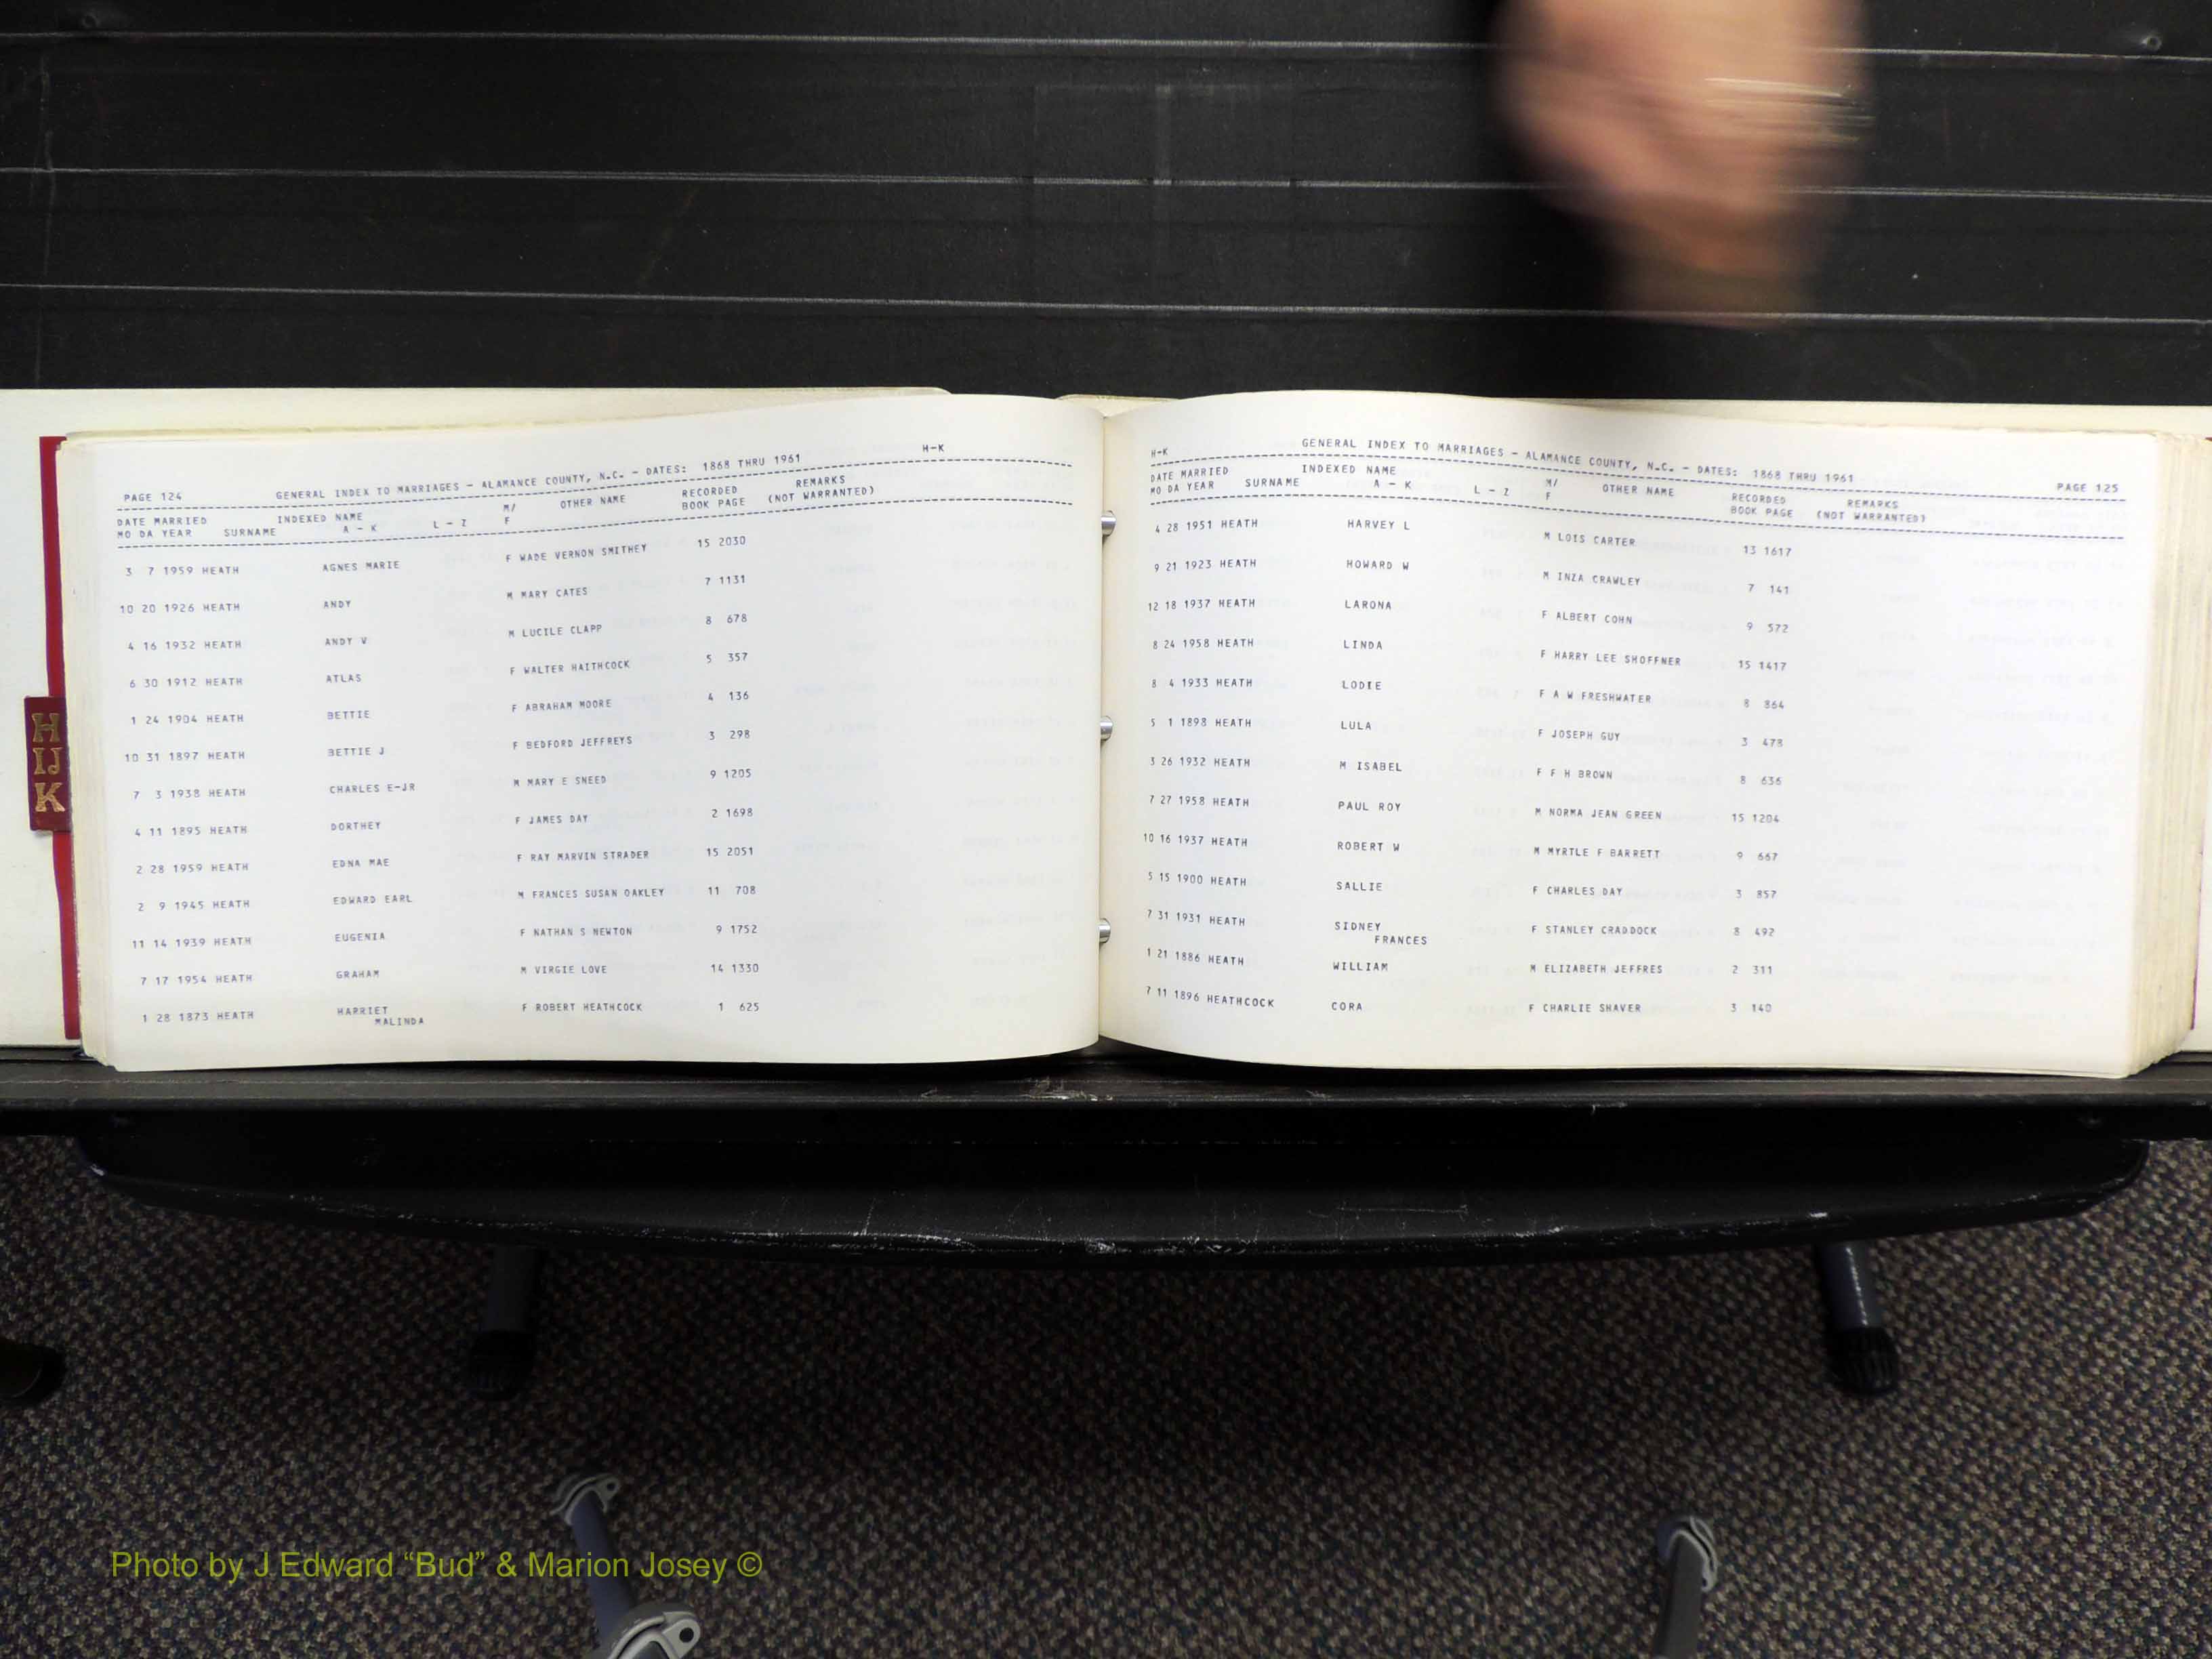 H
IJ
K
PAGE 124 GENERAL INDEX TO MARRIAGES - ALAMANCE COUNTY, N.C. - DATES: 1868 THRU 1961 H-K
DATE MARRIED INDEXED NAME M/ OTHER NAME RECORDED REMARKS
MO DA YEAR SURNAME A - K L - Z F BOOK PAGE (NOT WARRANTED)
3 7 1959 HEATH AGNES MARIE F WADE VERNON SMITHEY 15 2030
10 20 1926 HEATH ANDY M MARY CATES 7 1131
4 16 1932 HEATH ANDY V M LUCILE CLAPP 8 678
6 30 1912 HEATH ATLAS F WALTER HAITHCOCK 5 357
1 24 1904 HEATH BETTIE F ABRAHAM MOORE 4 136
10 31 1897 HEATH BETTIE J F BEDFORD JEFFREYS 3 298
7 3 1938 HEATH CHARLES E-JR M MARY E SNEED 9 1205
4 11 1895 HEATH DORTHEY F JAMES DAY 2 1698
2 28 1959 HEATH EDNA MAE F RAY MARVIN STRADER 15 2051
2 9 1945 HEATH EDWARD EARL M FRANCES SUSAN OAKLEY 11 708
11 14 1939 HEATH EUGENIA F NATHAN S NEWTON 9 1752
7 17 1954 HEATH GRAHAM M VIRGIE LOVE 14 1330
1 28 1873 HEATH HARRIET F ROBERT HEATHCOCK 1 625
MALINDA
H-K GENERAL INDEX TO MARRIAGES - ALAMANCE COUNTY, N.C. - DATES: 1868 THRU 1961 PAGE 125
DATE MARRIED INDEXED NAME M/ OTHER NAME RECORDED REMARKS
MO DA YEAR SURNAME A - K L - Z F BOOK PAGE (NOT WARRANTED)
4 28 1951 HEATH HARVEY L M LOIS CARTER 13 1617
9 21 1923 HEATH HOWARD W M INZA CRAWLEY 7 141
12 18 1937 HEATH LARONA F ALBERT COHN 9 572
8 24 1958 HEATH LINDA F HARRY LEE SHOFFNER 15 1417
8 4 1933 HEATH LODIE F A W FRESHWATER 8 864
5 1 1898 HEATH LULA F JOSEPH GUY 3 478
3 26 1932 HEATH M ISABEL F F H BROWN 8 636
7 27 1958 HEATH PAUL ROY M NORMA JEAN GREEN 15 1204
10 16 1937 HEATH ROBERT W M MYRTLE F BARRETT 9 667
5 15 1900 HEATH SALLIE F CHARLES DAY 3 857
7 31 1931 HEATH SIDNEY F STANLEY CRADDOCK 8 492
FRANCES
1 21 1886 HEATH WILLIAM M ELIZABETH JEFFRES 2 311
7 11 1896 HEATHCOCK CORA F CHARLIE SHAVER 3 140
Photo by J Edward “Bud” & Marion Josey ©